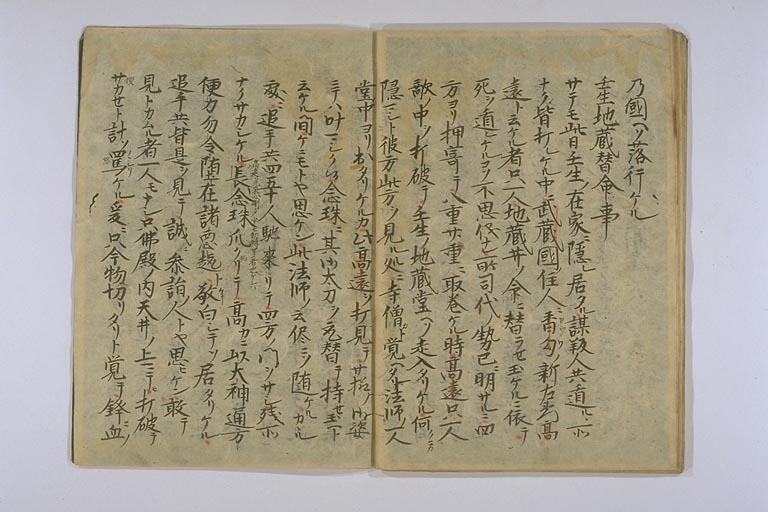 乃國ヘソ落行ケル
壬生地蔵替命事
サテモ此日壬生ノ在家ニ隠レ居タル謀叛人共ノ道ニ所
ナク皆打レケル中ニ武蔵國住人ニ香勾新左衛門高
遠ト云ケル者只一人地蔵菩ノ命ニ替ラセ玉ケルニ依テ
死ヲ遁レケルコソ不思儀ナレ所司代ノ勢已ニ明サルニ四
方ヨリ押寄テ八重廿重ニ取巻ケル時高遠只一人
敵ノ中ヲ打破テ壬生ノ地蔵堂ヘソ走入タリケル何方ニカ
隠レント彼方此方ヲ見ル処ニ寺僧ト覚ヘタル法師一人
堂中ヨリ出タリケルカ此高遠ヲ打見テ サ様ノ御姿
ニテハ叶マシク候念珠ニ其御太刀ヲ充替テ持セ玉ヘト
云ケル間ケニモトヤ思ケン此法師ノ云侭ニソ随ケルカヽル
処ニ追手共四五十人馳来リテ四方ノ門ヲサシ残所
ナクサカシケル高遠ハ長念珠爪クリテ高カニ以大神通方
便力勿令堕在諸悪趣ト敬白シテソ居タリケル
追手共皆是ヲ見テ誠ニ参詣ノ人トヤ思ケン敢テ
見トカムル者一人モナシ只佛殿ノ内天井ノ上ニテ打破テ
サカセト計ソ罵ケル爰ニ只今物切タリト覚テ鋒ニ血